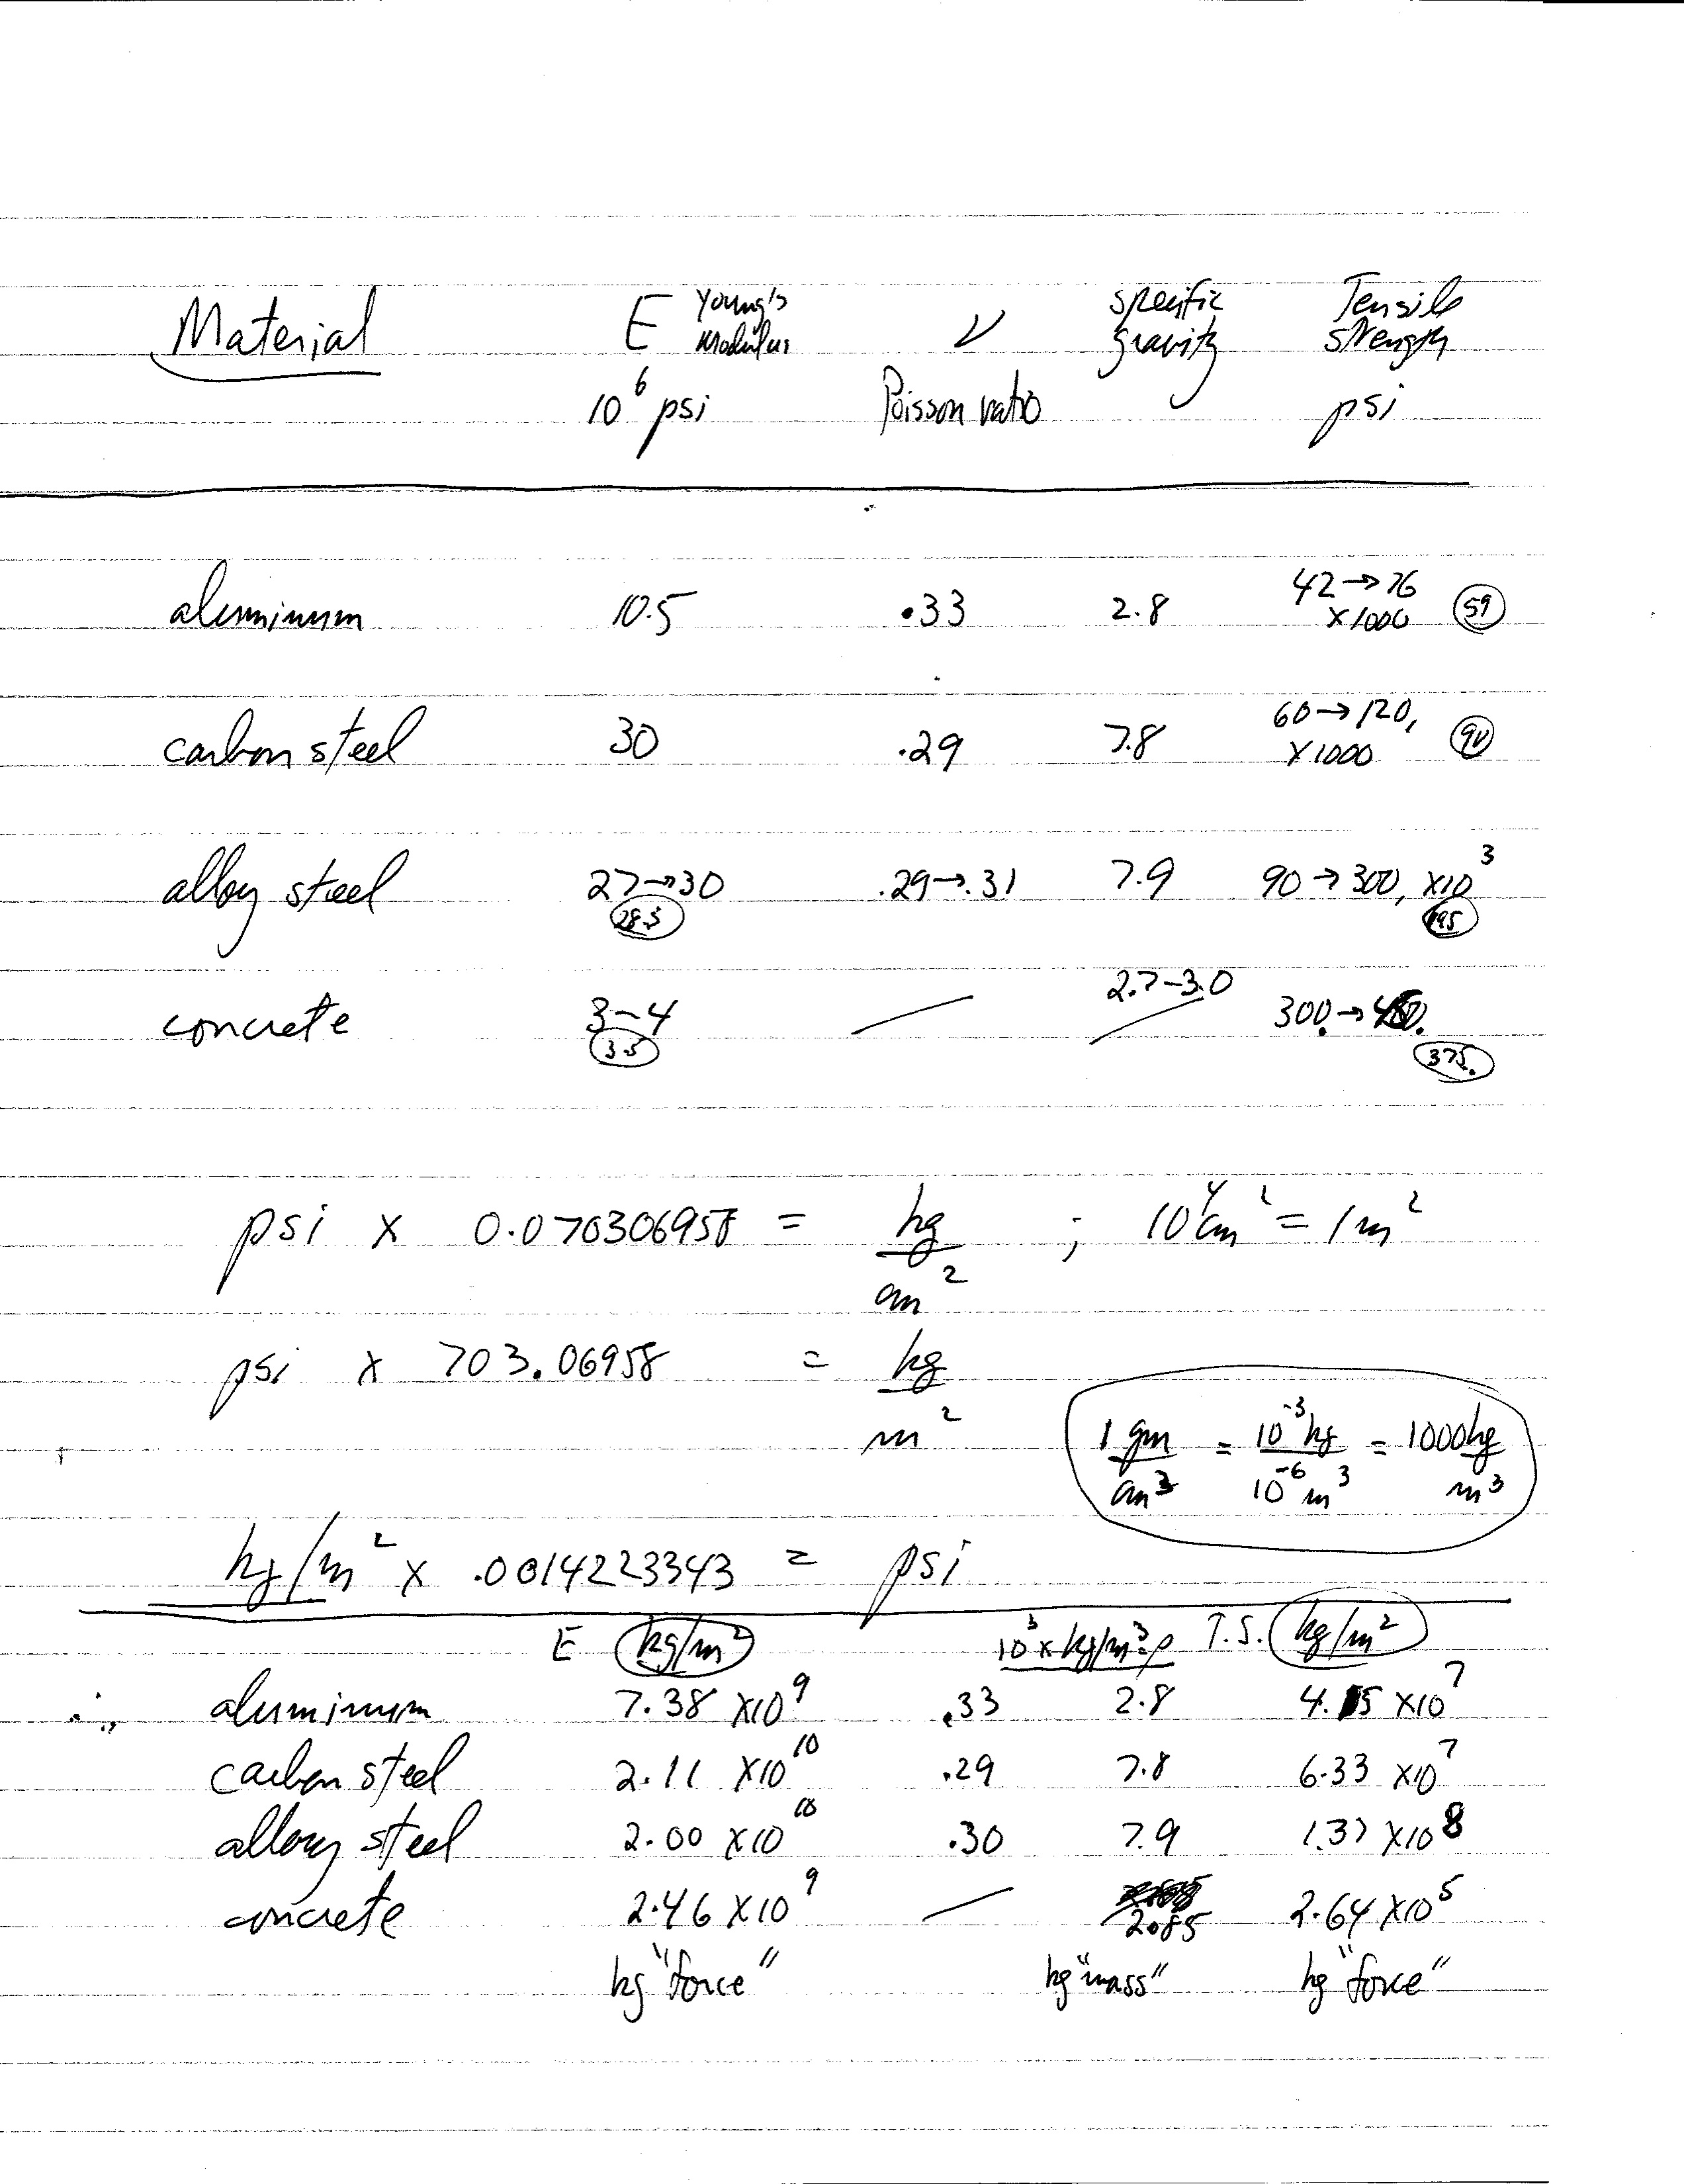 Material E Young's Modulus ν specific gravity Tensile strength
10⁶ psi Poisson ratio psi
aluminum 10.5 .33 2.8 42→76 x1000 59
carbon steel 30 .29 7.8 60→120, x1000 90
alloy steel 27→30 .29→.31 7.9 90→300, x10³
28.5 195
concrete 3-4 2.7-3.0 300.→
3.5 375.
psi x 0.070306958 = kg/cm² ; 10⁴cm² = 1m²
psi x 703.06958 = kg/m²
1 gm/cm³ = 10⁻³kg/10⁻⁶m³ = 1000kg/m³
kg/m² x .0014223343 = psi
E kg/m² 10³x kg/m³ ρ T.S. kg/m²
∴ aluminum 7.38 x10⁹ .33 2.8 4.15 x10⁷
carbon steel 2.11 x10¹⁰ .29 7.8 6.33 x10⁷
alloy steel 2.00 x10¹⁰ .30 7.9 1.37 x10⁸
concrete 2.46 x10⁹ 2.85 2.64 x10⁵
kg "force" kg "mass" kg "force"